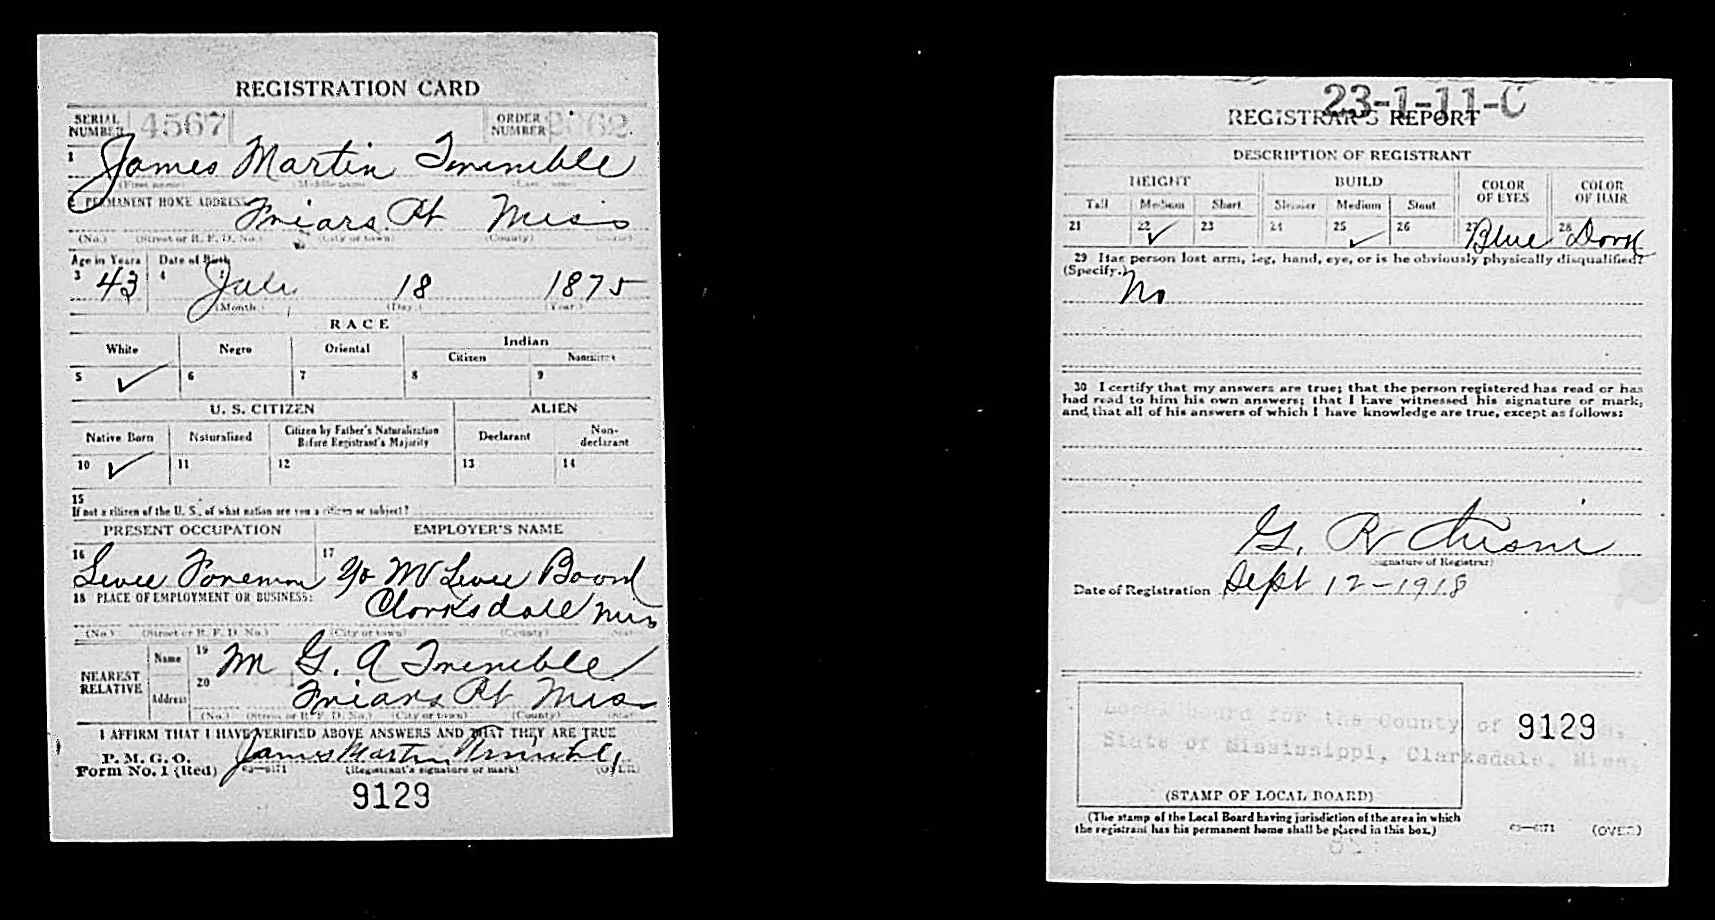 REGISTRATION CARD
SERIAL NUMBER 4567 ORDER NUMBER
1 James Martin Trimble
(First name) (Middle name) (Last name)
2 PERMANENT HOME ADDRESS:
Friars Pt Miss
(No.) (Street or R. F. D. No.) (City or town) (County) (State)
Age in Years Date of Birth
3 43 4 July 18 1875
(Month.) (Day.) (Year.)
RACE
White Negro Oriental Indian
Citizen Noncitizen
5 ✓ 6 7 8 9
U. S. CITIZEN ALIEN
Native Born Naturalized Citizen by Father's Naturalization Before Registrant's Majority Declarant Non-declarant
10 ✓ 11 12 13 14
15
If not a citizen of the U. S., of what nation are you a citizen or subject?
PRESENT OCCUPATION EMPLOYER'S NAME
16 Levee Foreman 17 Yo M Levee Board
18 PLACE OF EMPLOYMENT OR BUSINESS:
Clarksdale Miss
(No.) (Street or R. F. D. No.) (City or town) (County) (State)
NEAREST RELATIVE
Name 19 M G. A Trimble
Address 20 Friars Pt Miss
(No.) (Street or R. F. D. No.) (City or town) (County) (State)
I AFFIRM THAT I HAVE VERIFIED ABOVE ANSWERS AND THAT THEY ARE TRUE
P. M. G. O.
Form No. 1 (Red) James Martin Trimble
03—6171 (Registrant's signature or mark) (OVER)
9129
23-1-11-C
REGISTRAR'S REPORT
DESCRIPTION OF REGISTRANT
HEIGHT BUILD COLOR OF EYES COLOR OF HAIR
Tall Medium Short Slender Medium Stout
21 22 ✓ 23 24 25 ✓ 26 27 Blue 28 Dark
29 Has person lost arm, leg, hand, eye, or is he obviously physically disqualified?
(Specify.) No
30 I certify that my answers are true; that the person registered has read or has
had read to him his own answers; that I have witnessed his signature or mark,
and that all of his answers of which I have knowledge are true, except as follows:
G. R
(Signature of Registrar)
Date of Registration Sept 12-1918
Local Board for the County of
9129
State of Mississippi, Clarksdale, Miss.
(STAMP OF LOCAL BOARD)
(The stamp of the Local Board having jurisdiction of the area in which
the registrant has his permanent home shall be placed in this box.)
03—6171 (OVER)